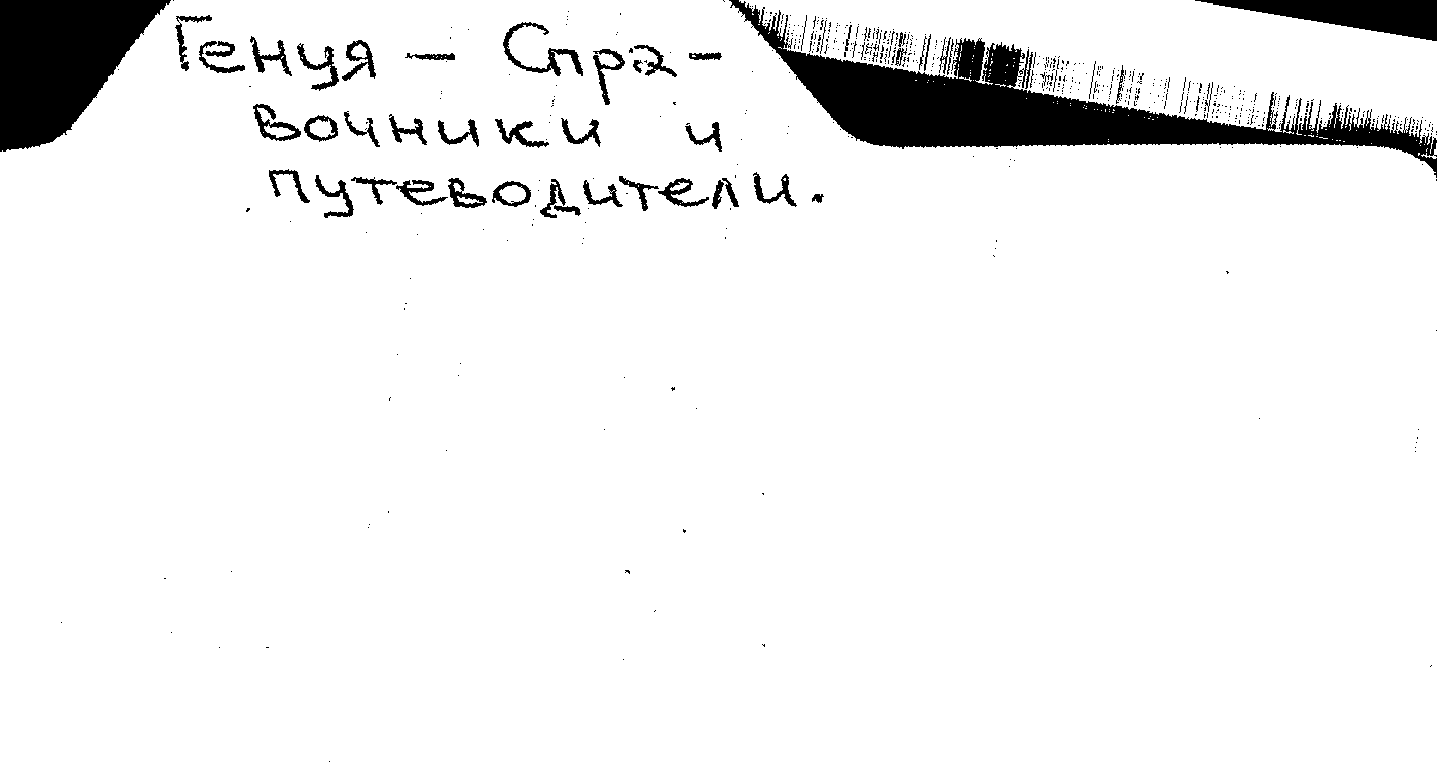 Генуя — Спра-
вочники и
путеводители.